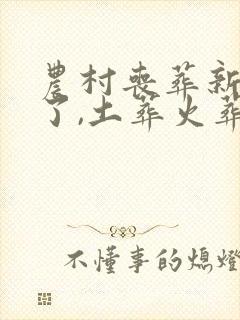 農村喪葬新
了,土葬火葬
不懂事的熄燈